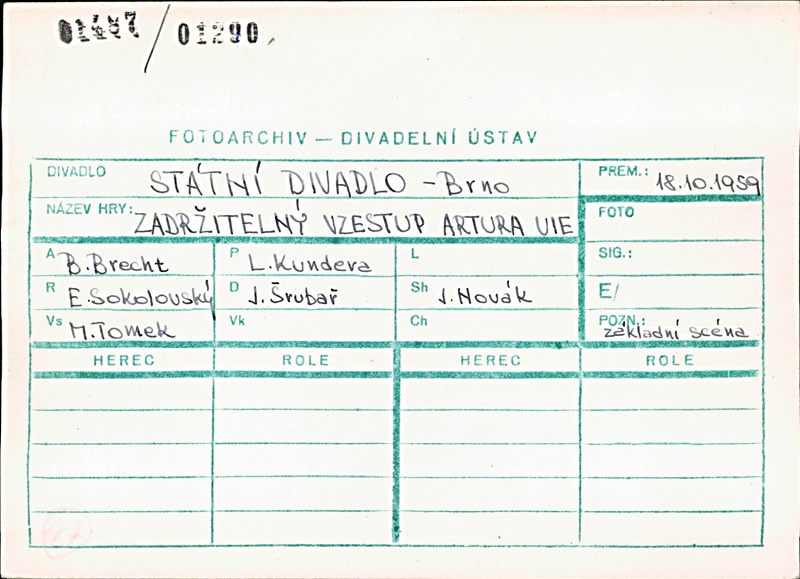 01487/01290
FOTOARCHIV — DIVADELNÍ ÚSTAV
DIVADLO STÁTNÍ DIVADLO - Brno PREM.: 18.10.1959
NÁZEV HRY: ZADRŽITELNÝ VZESTUP ARTURA UIE FOTO
A B. Brecht P L. Kundera L SIG.:
R E. Sokolovský D J. Šrubař Sh J. Novák E/
Vs M. Tomek Vk Ch POZN.: základní scéna
HEREC ROLE HEREC ROLE